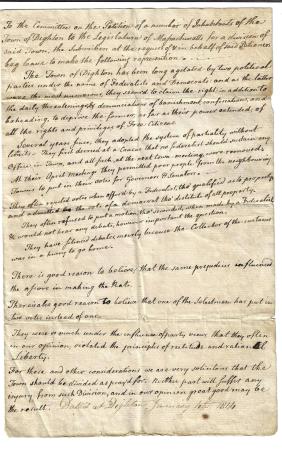 To the Committee on the Petition of a number of Inhabitants of the
Town of Dighton to the Legislature of Massachusetts for a division of
said Town, the Subscribers at the request of & in behalf of said Petitioners
beg leave to make the following representation.
The Town of Dighton has been long agitated by two political
parties under the name of Federalists and Democrats and as the latter
were the most numerous, they claimed the right in addition to
the daily threatenings & denunciations of banishment confiscations, and
beheading, to deprive the former, as far as their power extended, of
all the rights and privileges of Free Citizens.
Several years since, they adopted the system of partiality without
limits. They first decreed at a Caucus that no federalist should sustain any
Office, in Town, and all such, at the next town meeting, were removed,
At their April meetings they permitted paper people from the neighbouring
Towns to put in their votes for Governor & Senators.
They often rejected votes when offered by a Federalist, tho' qualified as to property
and admitted the vote of a democrat tho destitute of all property.
They often refused to put a motion, tho' seconded, when made by a Federalist
& would not hear any debate, however important the question.
They have stifled debates, merely because the Collector of the customs
was in a hurry to go home.
There is good reason to believe, that the same prejudices influenced
the Assessors in making the Rate.
There is also good reason to believe that one of the Selectmen has put in
two votes instead of one.
They were so much under the influence of party views that they often,
in our opinion, violated the principles of rectitude and rational
Liberty.
For these and other considerations we are very solicitous that the
Town should be divided as prayed for. Neither part will suffer any
injury from such Division, and in our opinion great good may be
the result. Dated at Dighton January 10th 1814